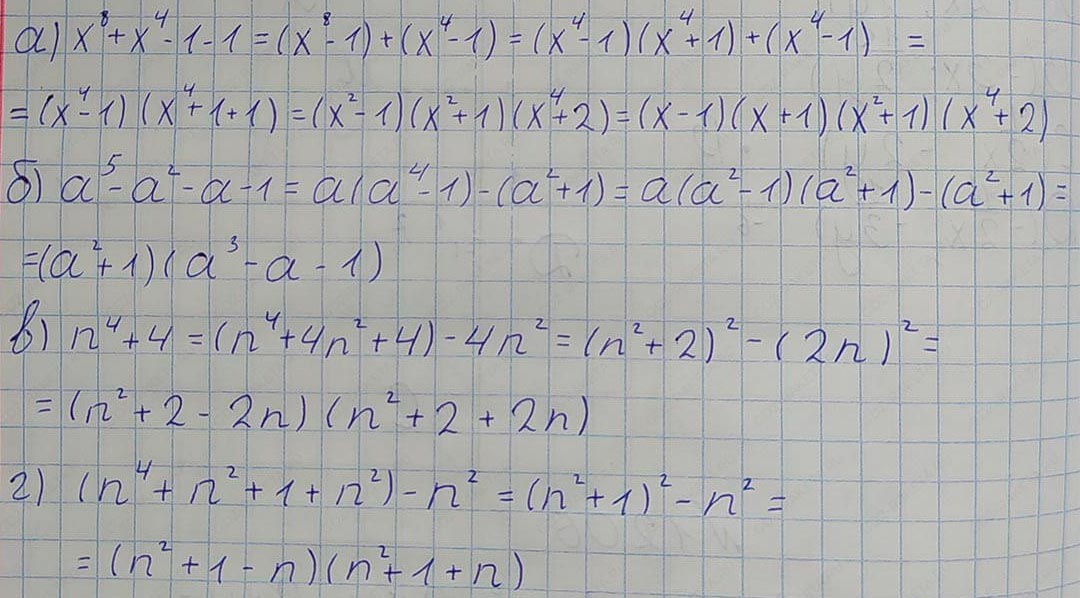 а) x⁸+x⁴-1-1=(x⁸-1)+(x⁴-1)=(x⁴-1)(x⁴+1)+(x⁴-1) =
=(x⁴-1)(x⁴+1+1)=(x²-1)(x²+1)(x⁴+2)=(x-1)(x+1)(x²+1)(x⁴+2)
б) a⁵-a²-a-1=a(a⁴-1)-(a²+1)=a(a²-1)(a²+1)-(a²+1)=
=(a²+1)(a³-a-1)
в) n⁴+4=(n⁴+4n²+4)-4n²=(n²+2)²-(2n)²=
=(n²+2-2n)(n²+2+2n)
г) (n⁴+n²+1+n²)-n²=(n²+1)²-n²=
=(n²+1-n)(n²+1+n)